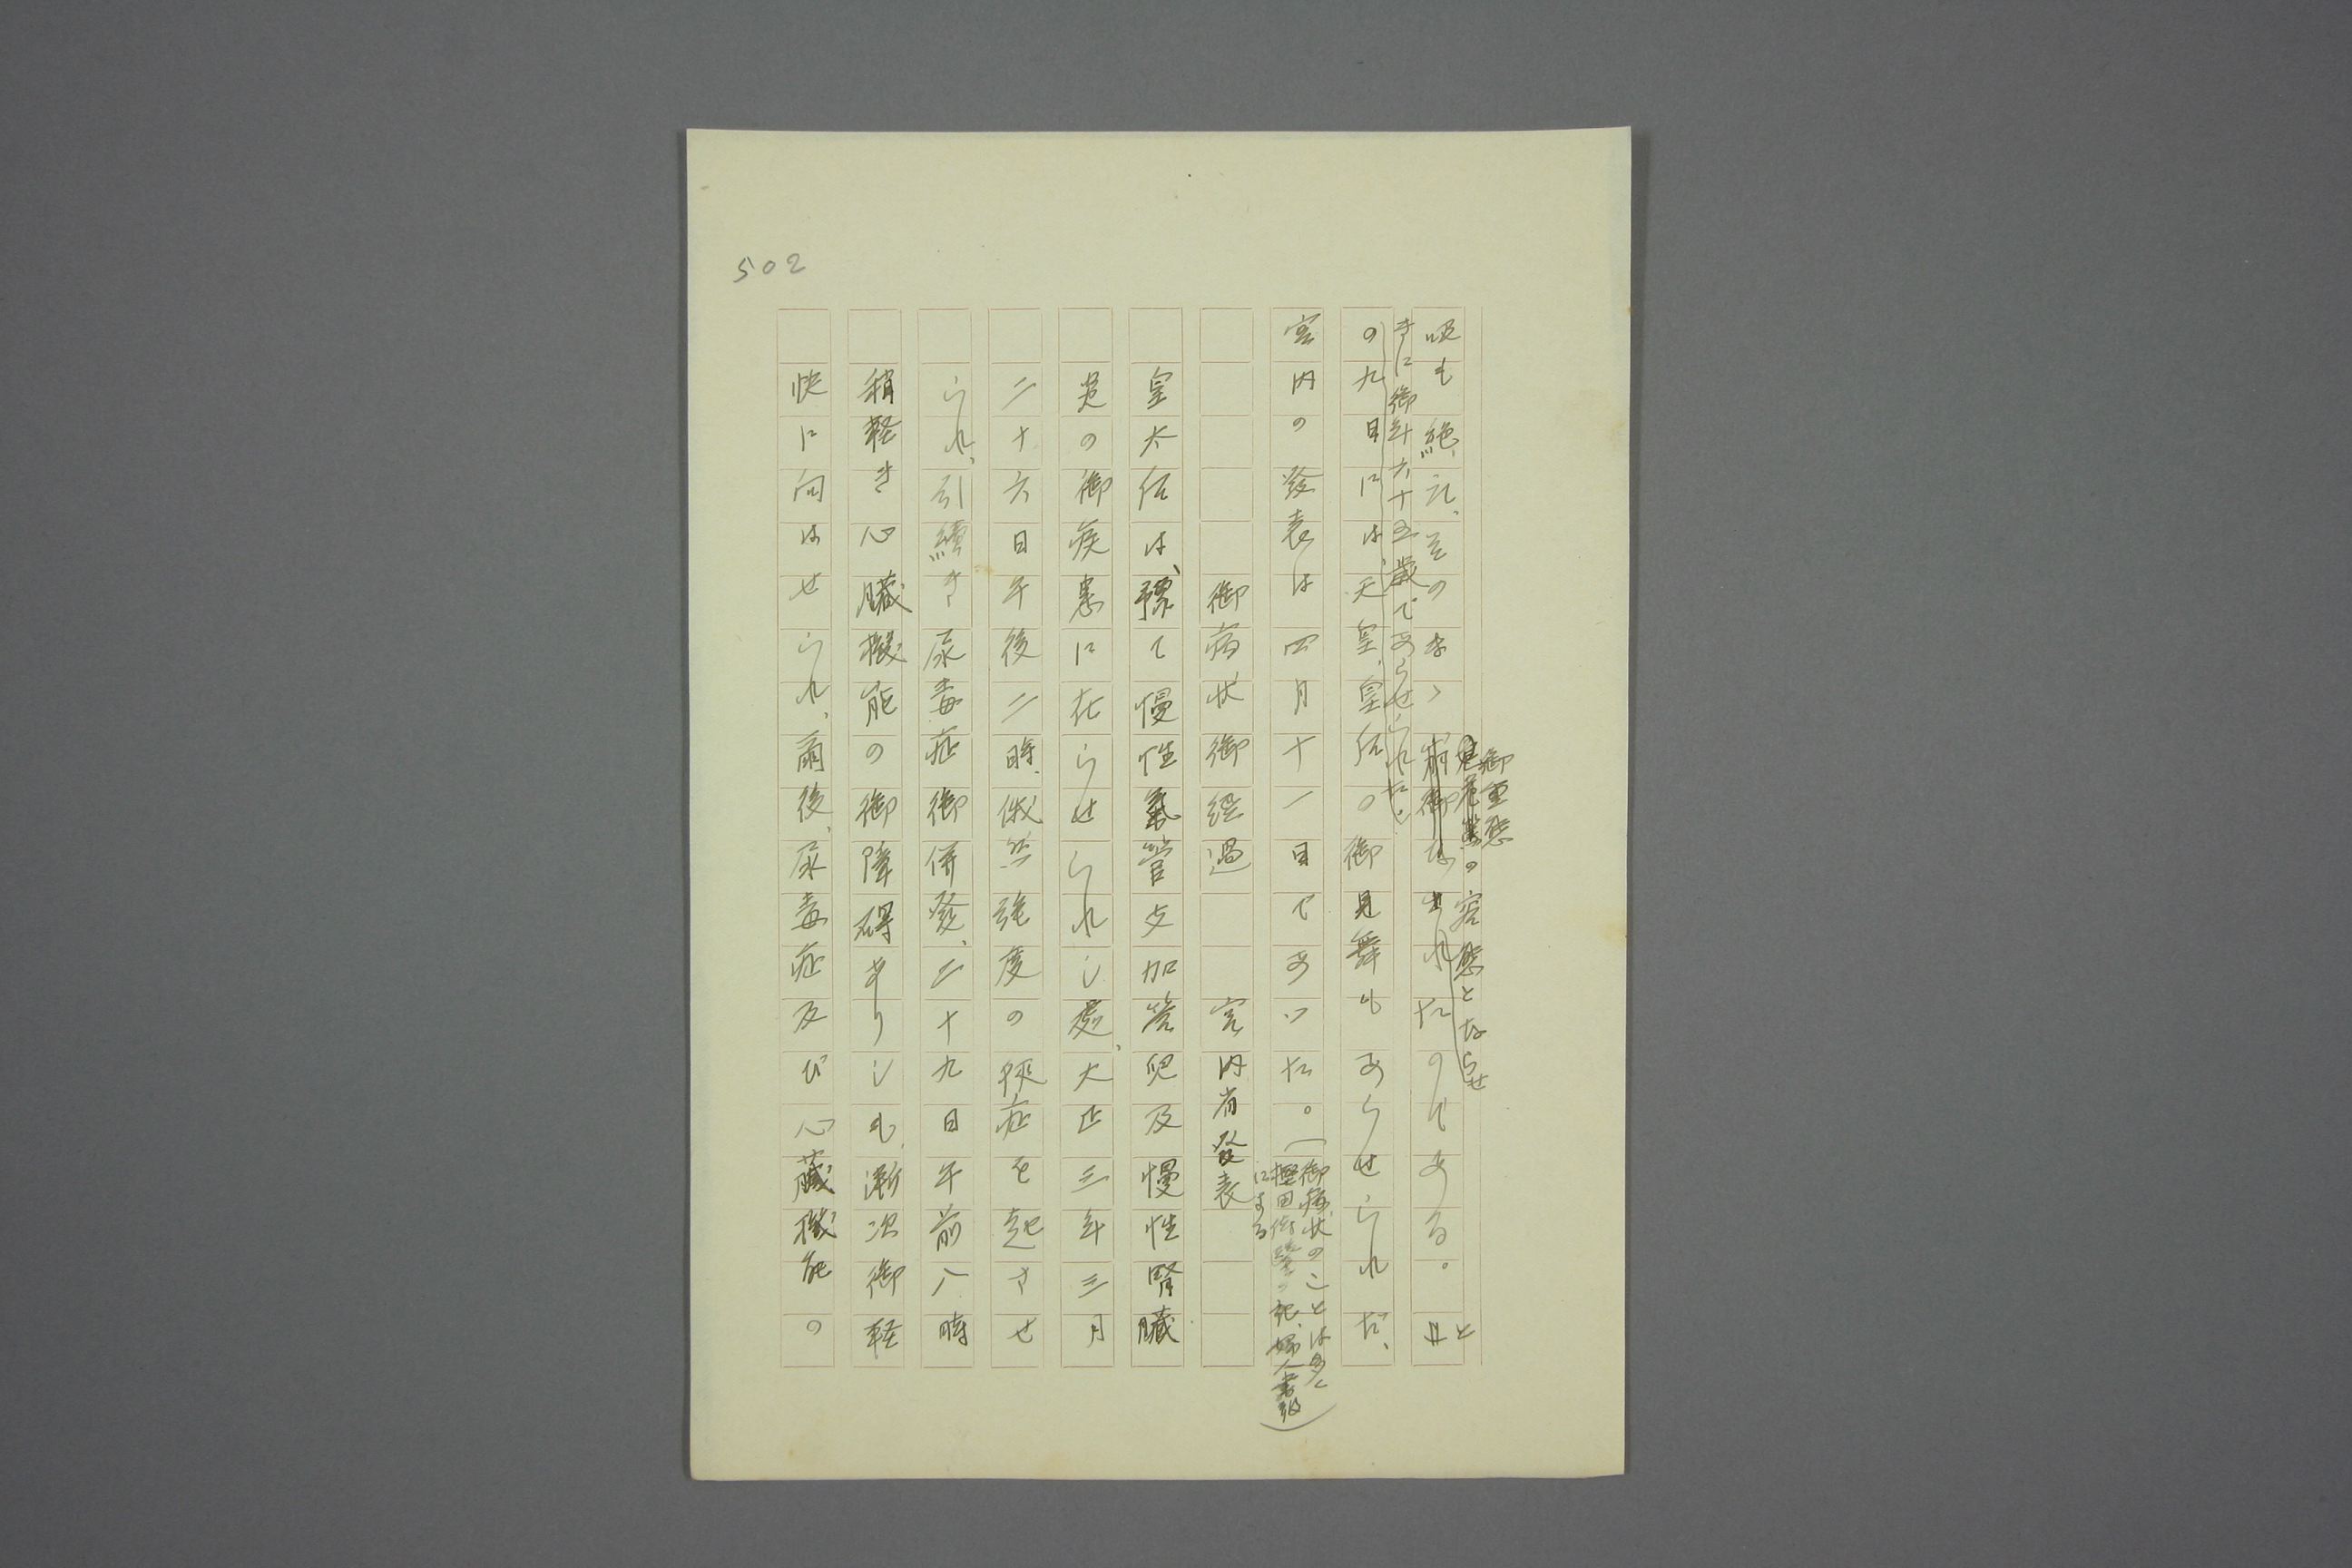 502
御重態
の容態とならせ
吸も絶え、そのまゝ崩御なされたのである。と
きに御年六十五歳であらせられた。
の九日には、天皇、皇后の御見舞もあらせられた、
宮内の發表は四月十一日であつた。
(御病状のことは多く
樫田侍醫の記、婦人畫報
による)
御病状御経過 宮内省発表
皇太后は、予て慢性氣管支加答児及慢性腎臓
炎の御疾患に在らせられし處、大正三年三月
二十六日午後二時俄然強度の狭症を起させ
られ、引續き尿毒症御併發、二十九日午前八時
稍軽き心臓機能の御障碍ありしも、漸次御軽
快に向はせられ、爾後、尿毒症及び心臓機能の